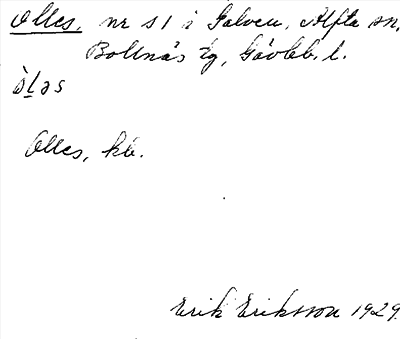 Olles, nr 51 i Galven, Alfta sn,
Bollnäs tg, Gävleb. l.
òḷəs
Olles, kb.
Erik Eriksson 1929.